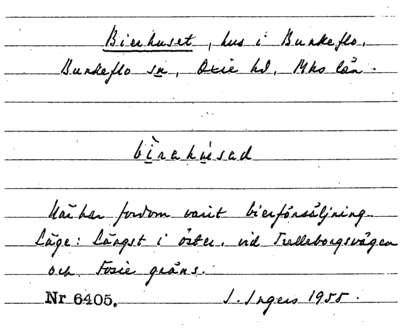 Bierhuset, hus i Bunkeflo,
Bunkeflo sn, Oxie hd, Mhs län.
bi̱rahu̱sad
Här har fordom varit bierförsäljning.
Läge: Längst i öster, vid Trelleborgsvägen
och Fosie gräns.
Nr 6405. I. Ingers 1955.